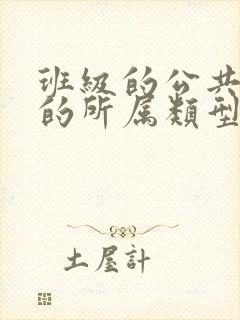 班級的公共
的所属類型
土屋計